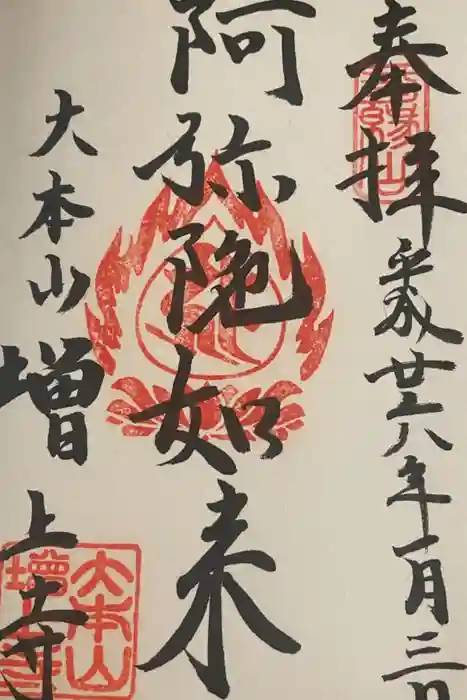 奉拝
平成廿六年一月三日
阿弥陀如来
大本山
増上寺
三縁山
大本山
増上寺